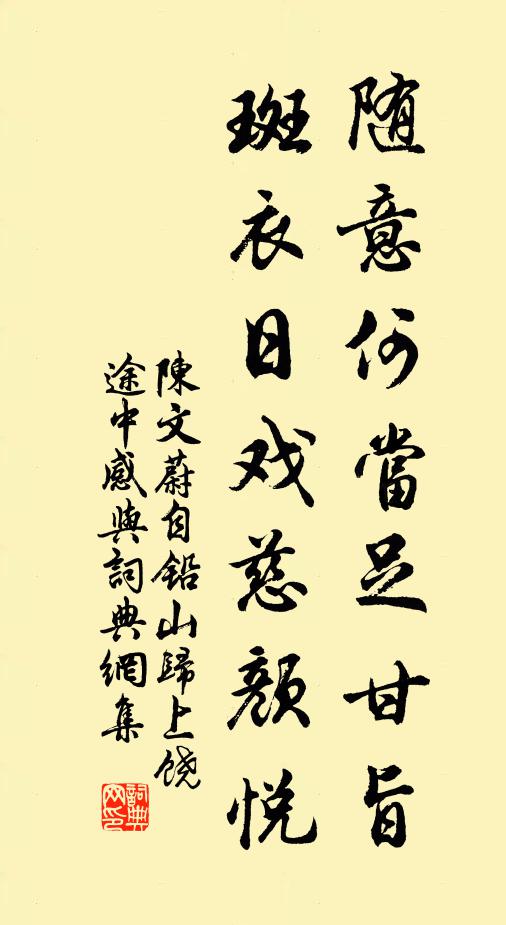 随意何當足甘旨
斑衣日戏慈颜悦
陳文蔚自铅山歸上饶
途中感興詞典網集
詞典网印